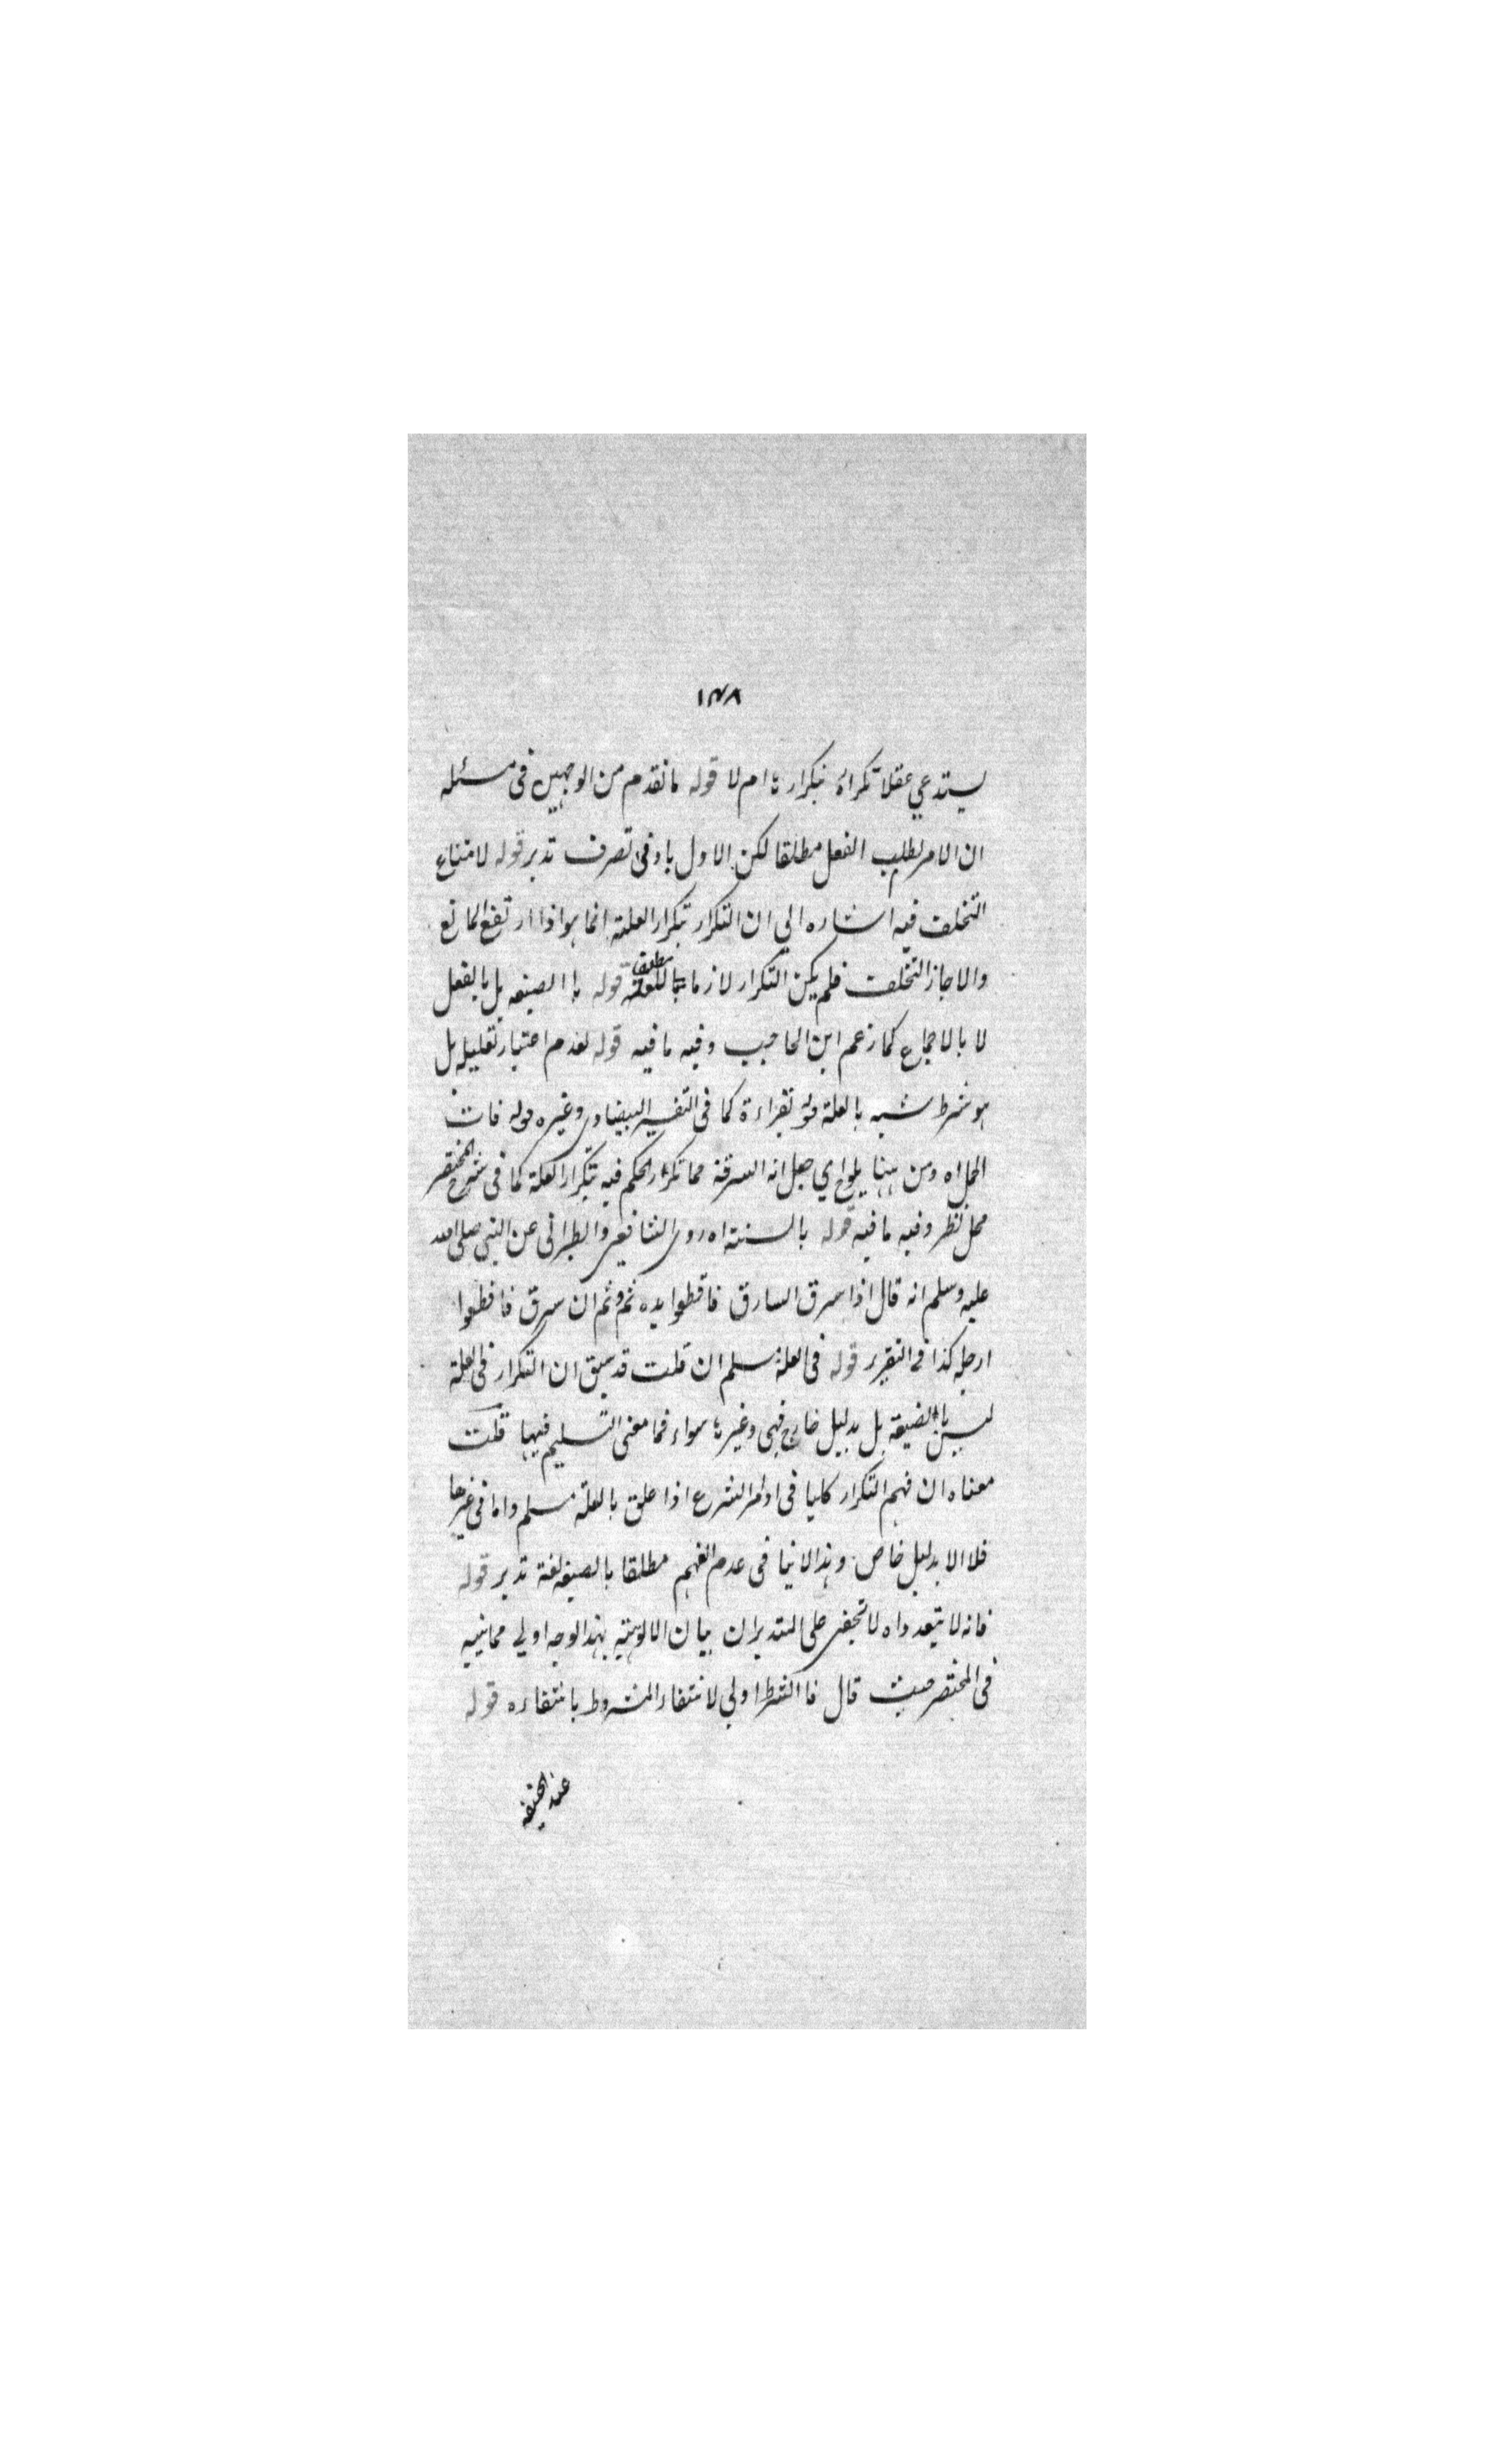 ١٣٨
يستدعي عقلا تكراره بتكرارها ام لا قوله ما تقدم من الوجهين فى مسئله
ان الامر لطلب الفعل مطلقا لكن الاول بادنى تصرف تدبر قوله لامتناع
التخلف فيه اشاره الي ان التكرار بتكرار العلة انما هو اذا ارتفع المانع
والا جاز التخلف فلم يكن التكرار لازما مطلق للعلة قوله بالصيغه بل بالفعل
لا بالاجماع كما زعم ابن الحاجب وفيه ما فيه قوله لعدم اعتبار تعليله بل
هو شرط شبه بالعلة قوله بقراءة كما فى التفسير البيضاوى وغيره قوله فات
المحل اه ومن هنا يلوح اي جعل انه السرقة مما تكرار الحكم فيه بتكرار العلة كما فى شرح المختصر
محل نظر وفيه ما فيه قوله بالسنة اه روى الشافعى والطبرانى عن النبى صلى الله
عليه وسلم انه قال اذا سرق السارق فاقطعوا يده ثم وثم ان سرق فاقطعوا
ارجله كذا فى التقرير قوله فى العلة مسلم ان قلت قد سبق ان التكرار فى العلة
ليس بالصيغة بل بدليل خارج فهى وغيرها سواء فما معنى التسليم فيها قلت
معناه ان فهم التكرار كليا فى اوامر الشرع اذا علق بالعلة مسلم واما فى غيرها
فلا الا بدليل خاص وهذا لا ينافى عدم الفهم مطلقا بالصيغه لغة تدبر قوله
فانه لا يتعدد اه لا تخفى على المتدبر ان بيان الالوية بهذا الوجه اولي مما نبيه
فى المختصر حيث قال فالشرط اولي لانتفاء المشروط بانتفاءه قوله
عند الحنفيه